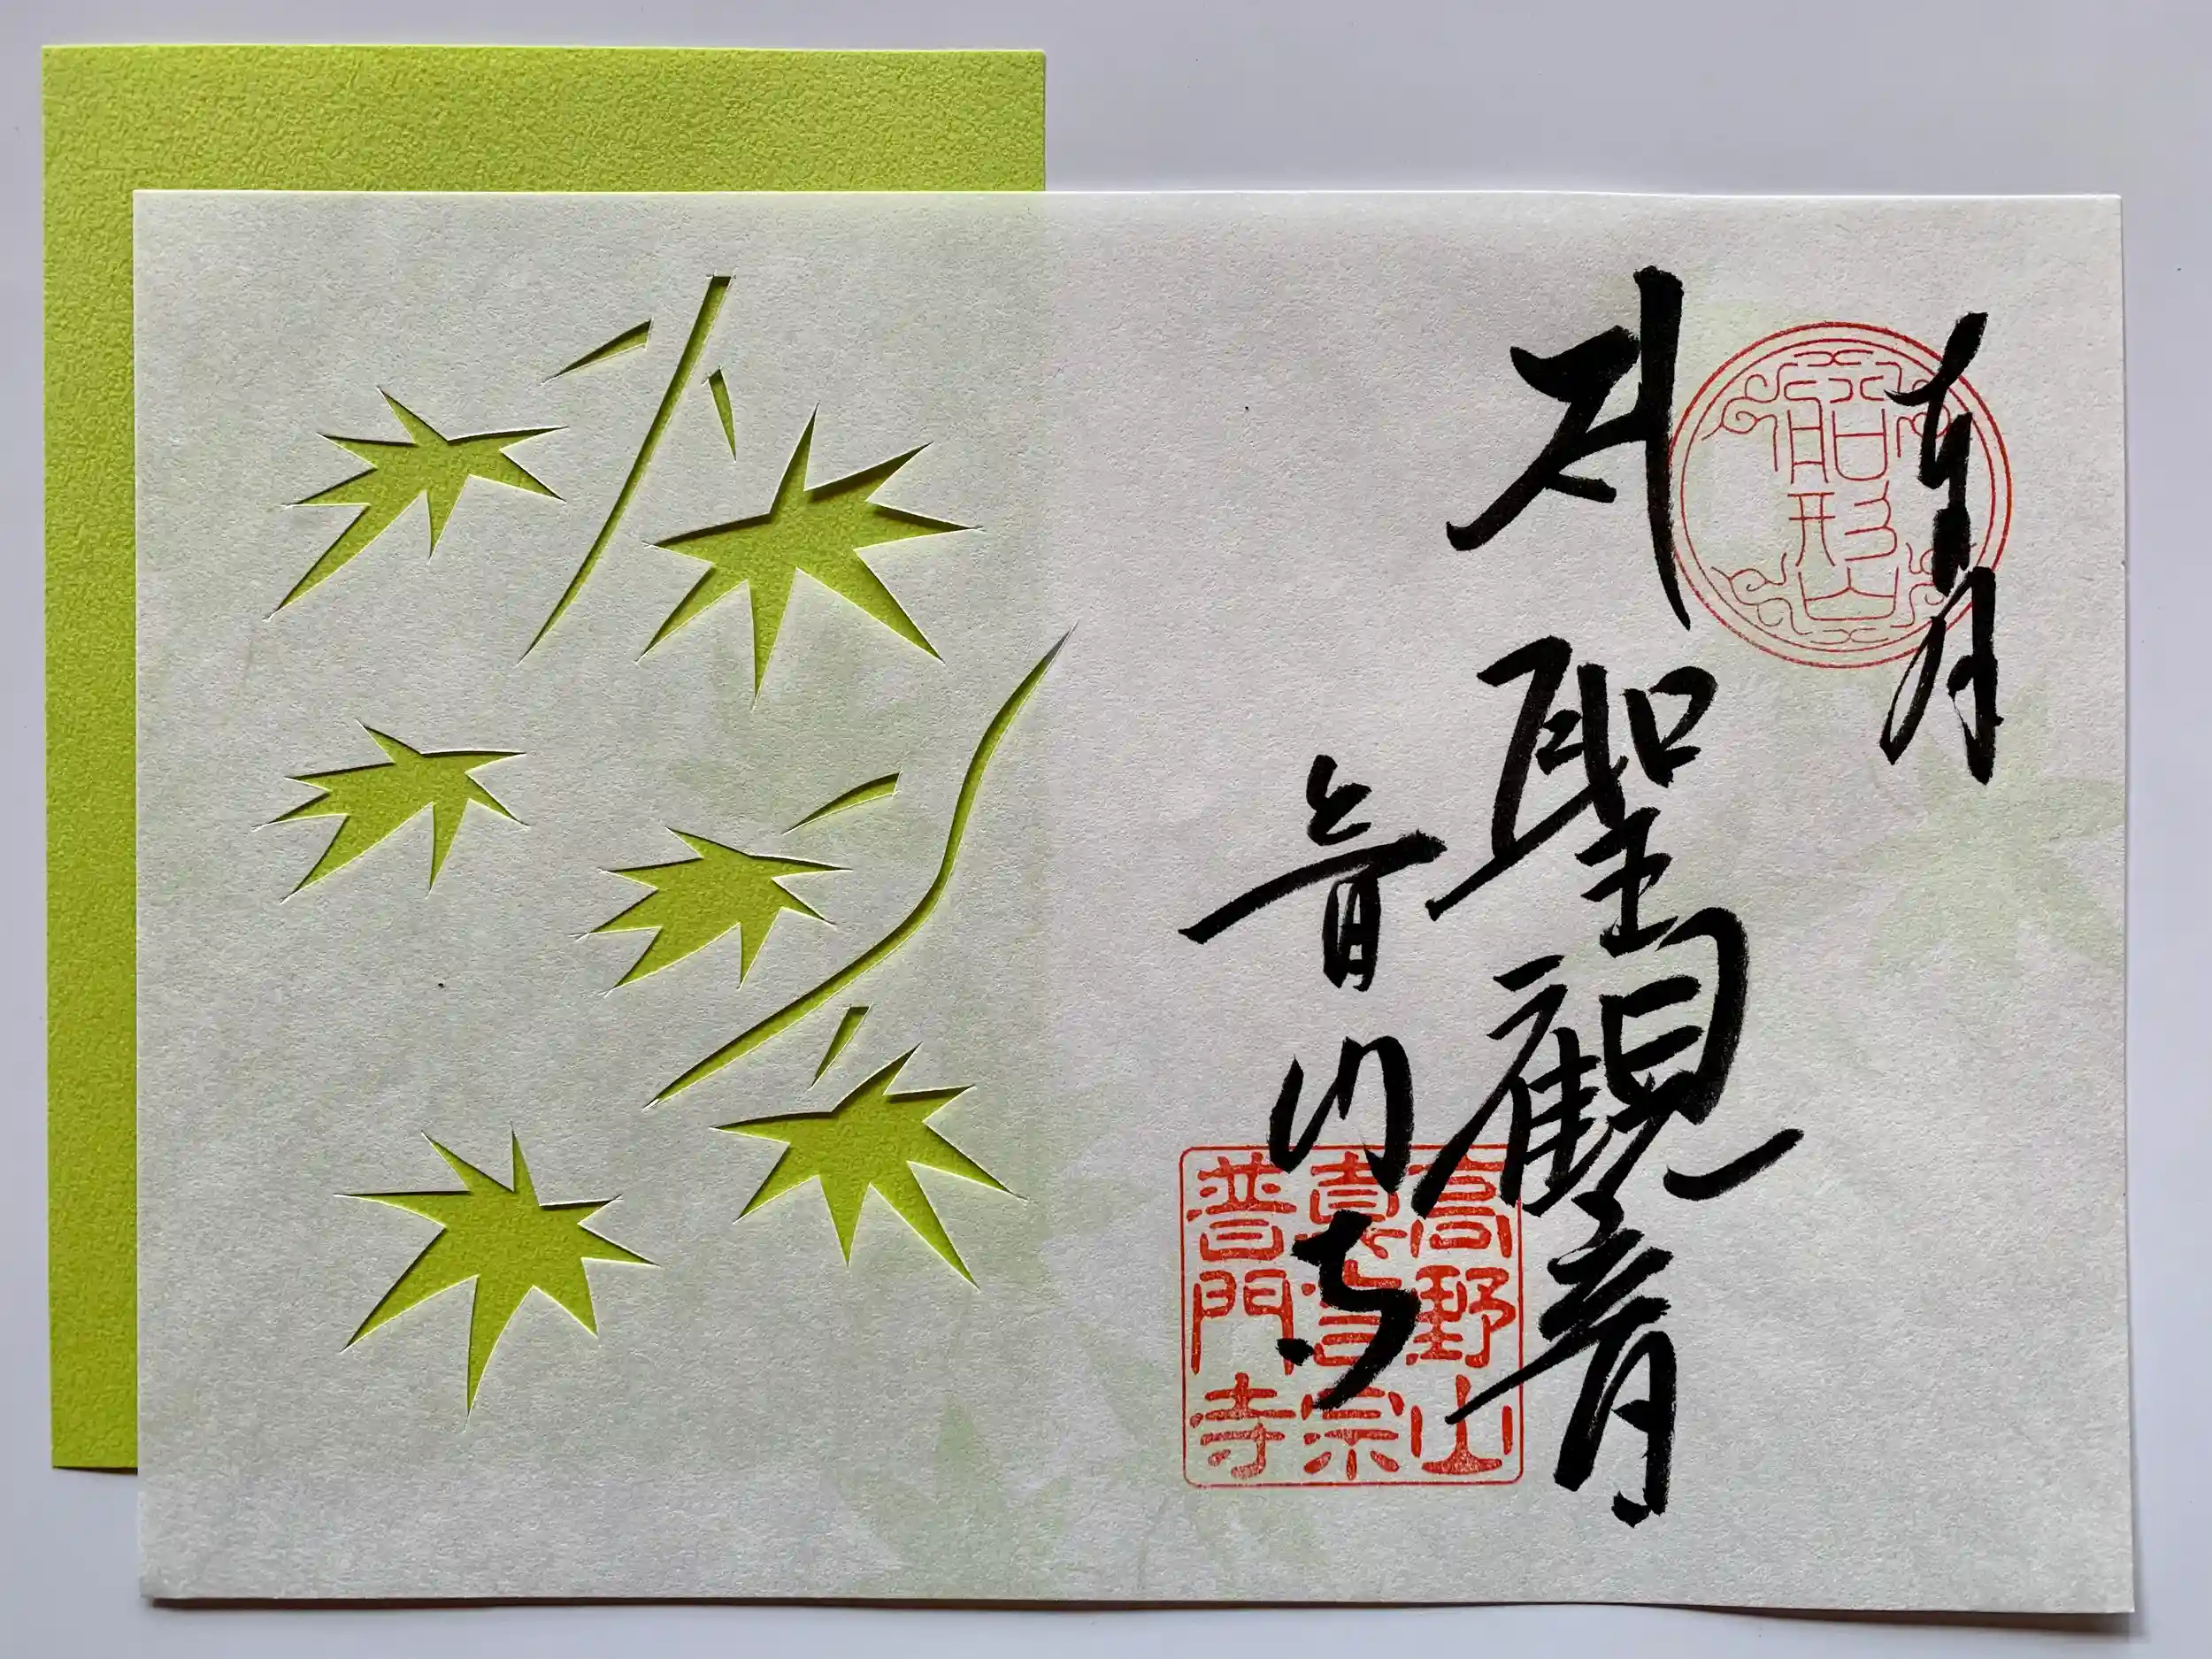 聖観音
普門寺
船形山
高野山
真言宗
普門寺